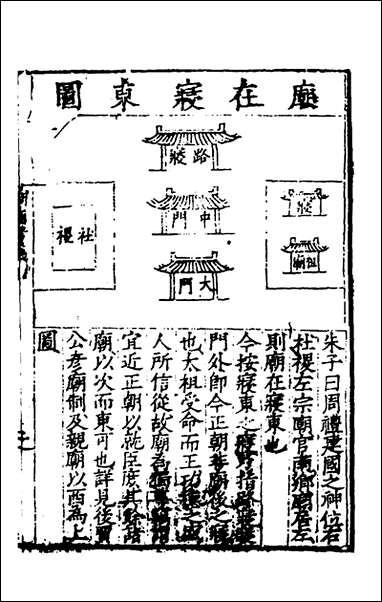 廟在寢東圖
寢
祖廟
路寢
中門
大門
社稷
朱子曰周禮建國之神位右
社稷左宗廟宫南鄉廟居左
則廟在寢東也
今按寢東之
門外卽今正朝
也太祖受命而王功德之
人所信從故廟
宜近正朝以就臣庶其餘諸
廟以次而東可也詳見後賈
公彦廟制及親廟以西爲上
圖